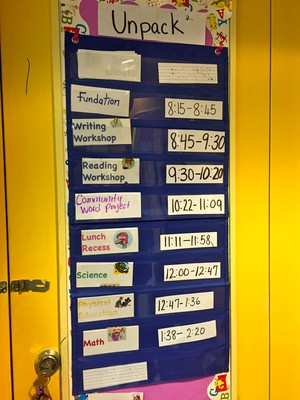 Unpack
Fundation 8:15-8:45
Writing Workshop 8:45-9:30
Reading Workshop 9:30-10:20
Community Word Project 10:22-11:09
Lunch Recess 11:11-11:58
Science 12:00-12:47
Physical Education 12:47-1:36
Math 1:38-2:20